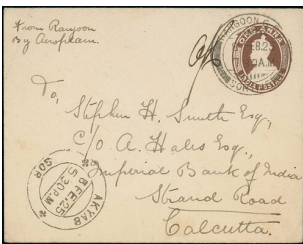 From Rangoon
By Aeroplane.
RANGOON G.
FEB.25
ONE ANNA
To,
Stephen H. Smith Esq.,
C/o A. Hales Esq.,
Imperial Bank of India
Strand Road
Calcutta.
AKYAB
8 FE.25
5-30 P.M
SOR